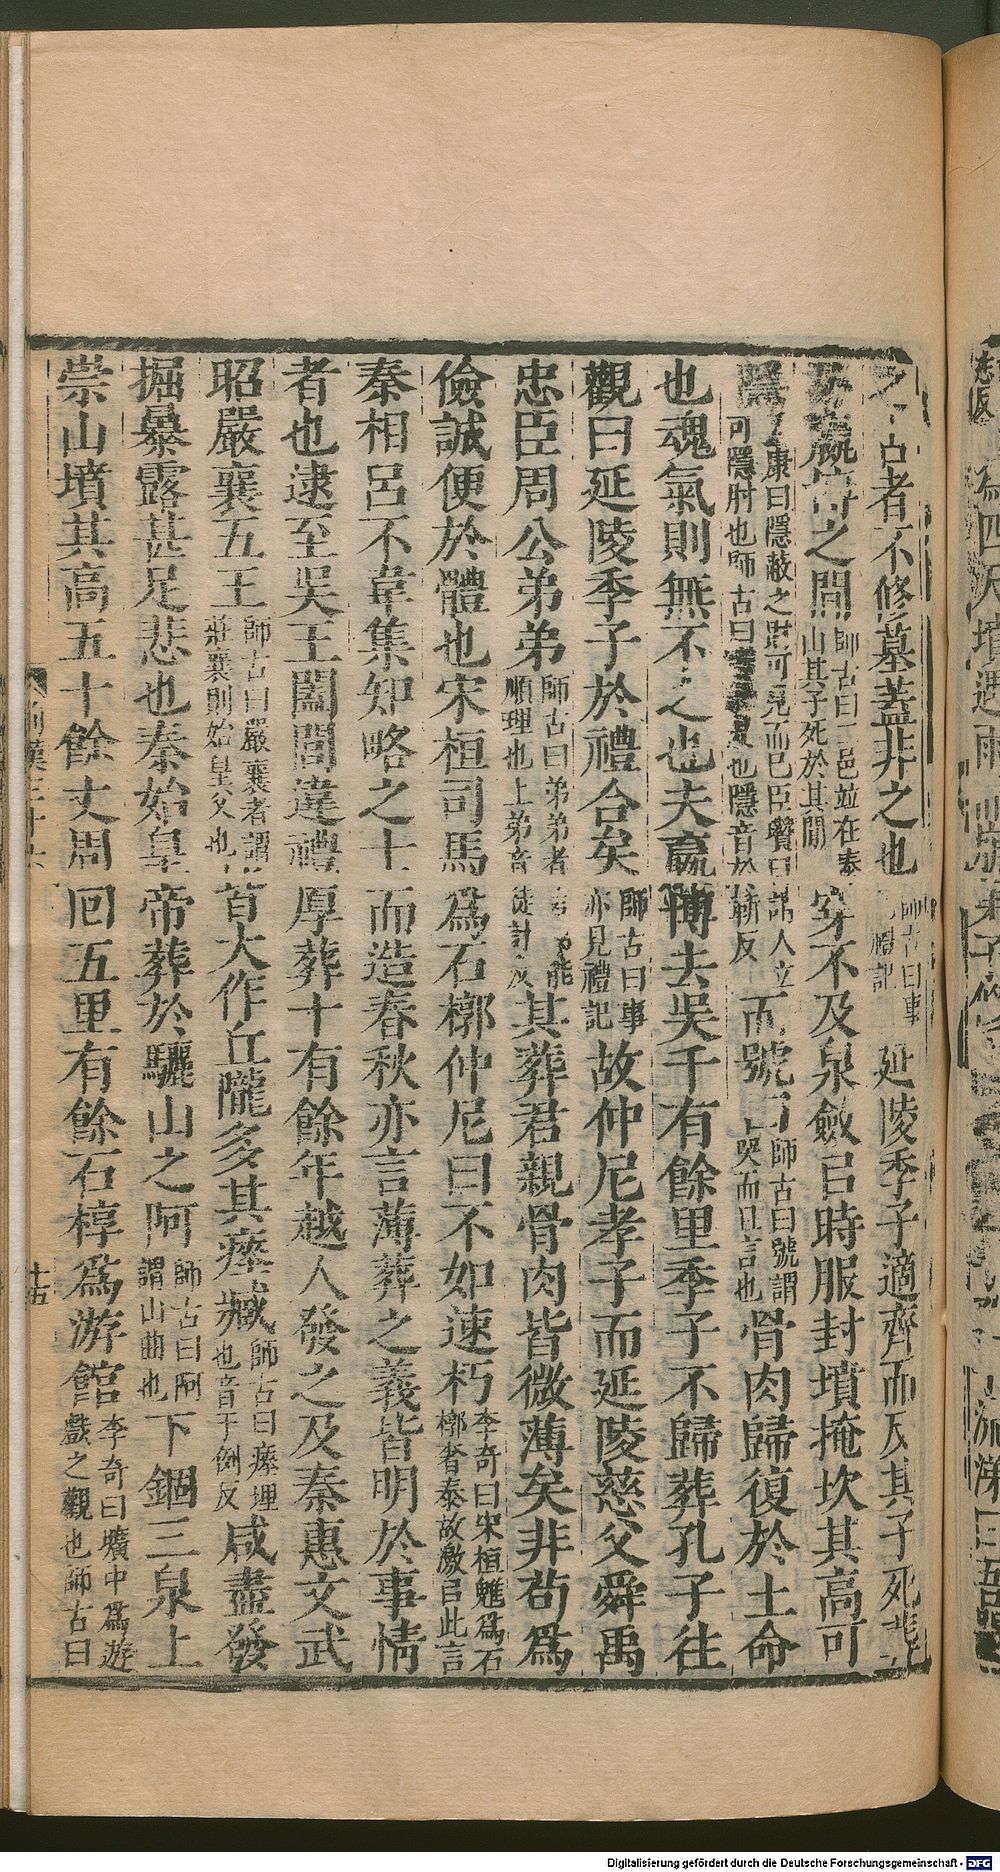 之古者不修墓蓋非之也師古曰事禮記延陵季子適齊而反其子死葬
嬴博之間師古曰二邑並在泰山其子死於其閒穿不及泉斂㠯時服封墳掩坎其高可
隱康曰隱蔽之財可見而已臣瓚曰謂人立可隱肘也師古曰是也隱音於靳反而號曰師古曰號謂哭而且言也骨肉歸復於土命
也魂氣則無不之也夫嬴博去吳千有餘里季子不歸葬孔子往
觀曰延陵季子於禮合矣師古曰事亦見禮記故仲尼孝子而延陵慈父舜禹
忠臣周公弟弟師古曰弟弟者言能順理也上弟音徒計反其葬君親骨肉皆微薄矣非苟為
儉誠便於體也宋桓司馬為石槨仲尼曰不如速朽李奇曰宋桓魋為石槨奢泰故激㠯此言
秦相呂不韋集知略之士而造春秋亦言薄葬之義皆明於事情
者也逮至吳王闔閭違禮厚葬十有餘年越人發之及秦惠文武
昭嚴襄五王師古曰嚴襄者謂莊襄則始皇父也皆大作丘隴多其瘞臧師古曰瘞埋也音于例反咸盡發
掘暴露甚足悲也秦始皇帝葬於驪山之阿師古曰阿謂山曲也下錮三泉上
崇山墳其高五十餘丈周回五里有餘石椁為游館李奇曰壙中為遊戲之觀也師古曰
十五
Digitalisierung gefördert durch die Deutsche Forschungsgemeinschaft - DFG